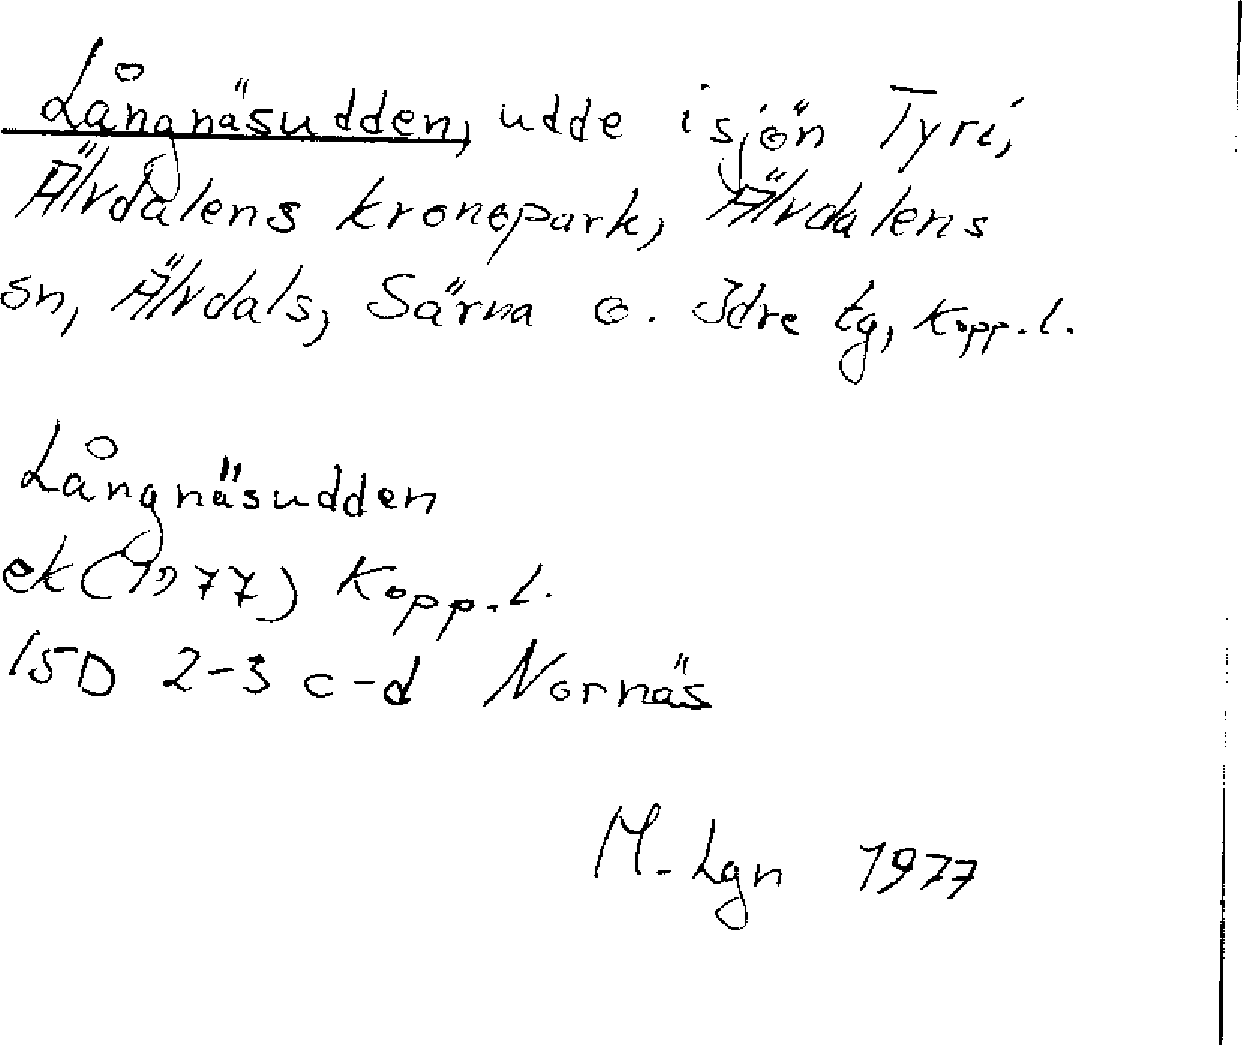 Långnäsudden, udde i sjön Tyri,
Älvdalens kronopark, Älvdalens
sn, Älvdals, Särna o. Idre tg, Kopp.l.
Långnäsudden
ek(1977) Kopp.l.
15D 2-3 c-d Nornäs
M. Lgn 1977